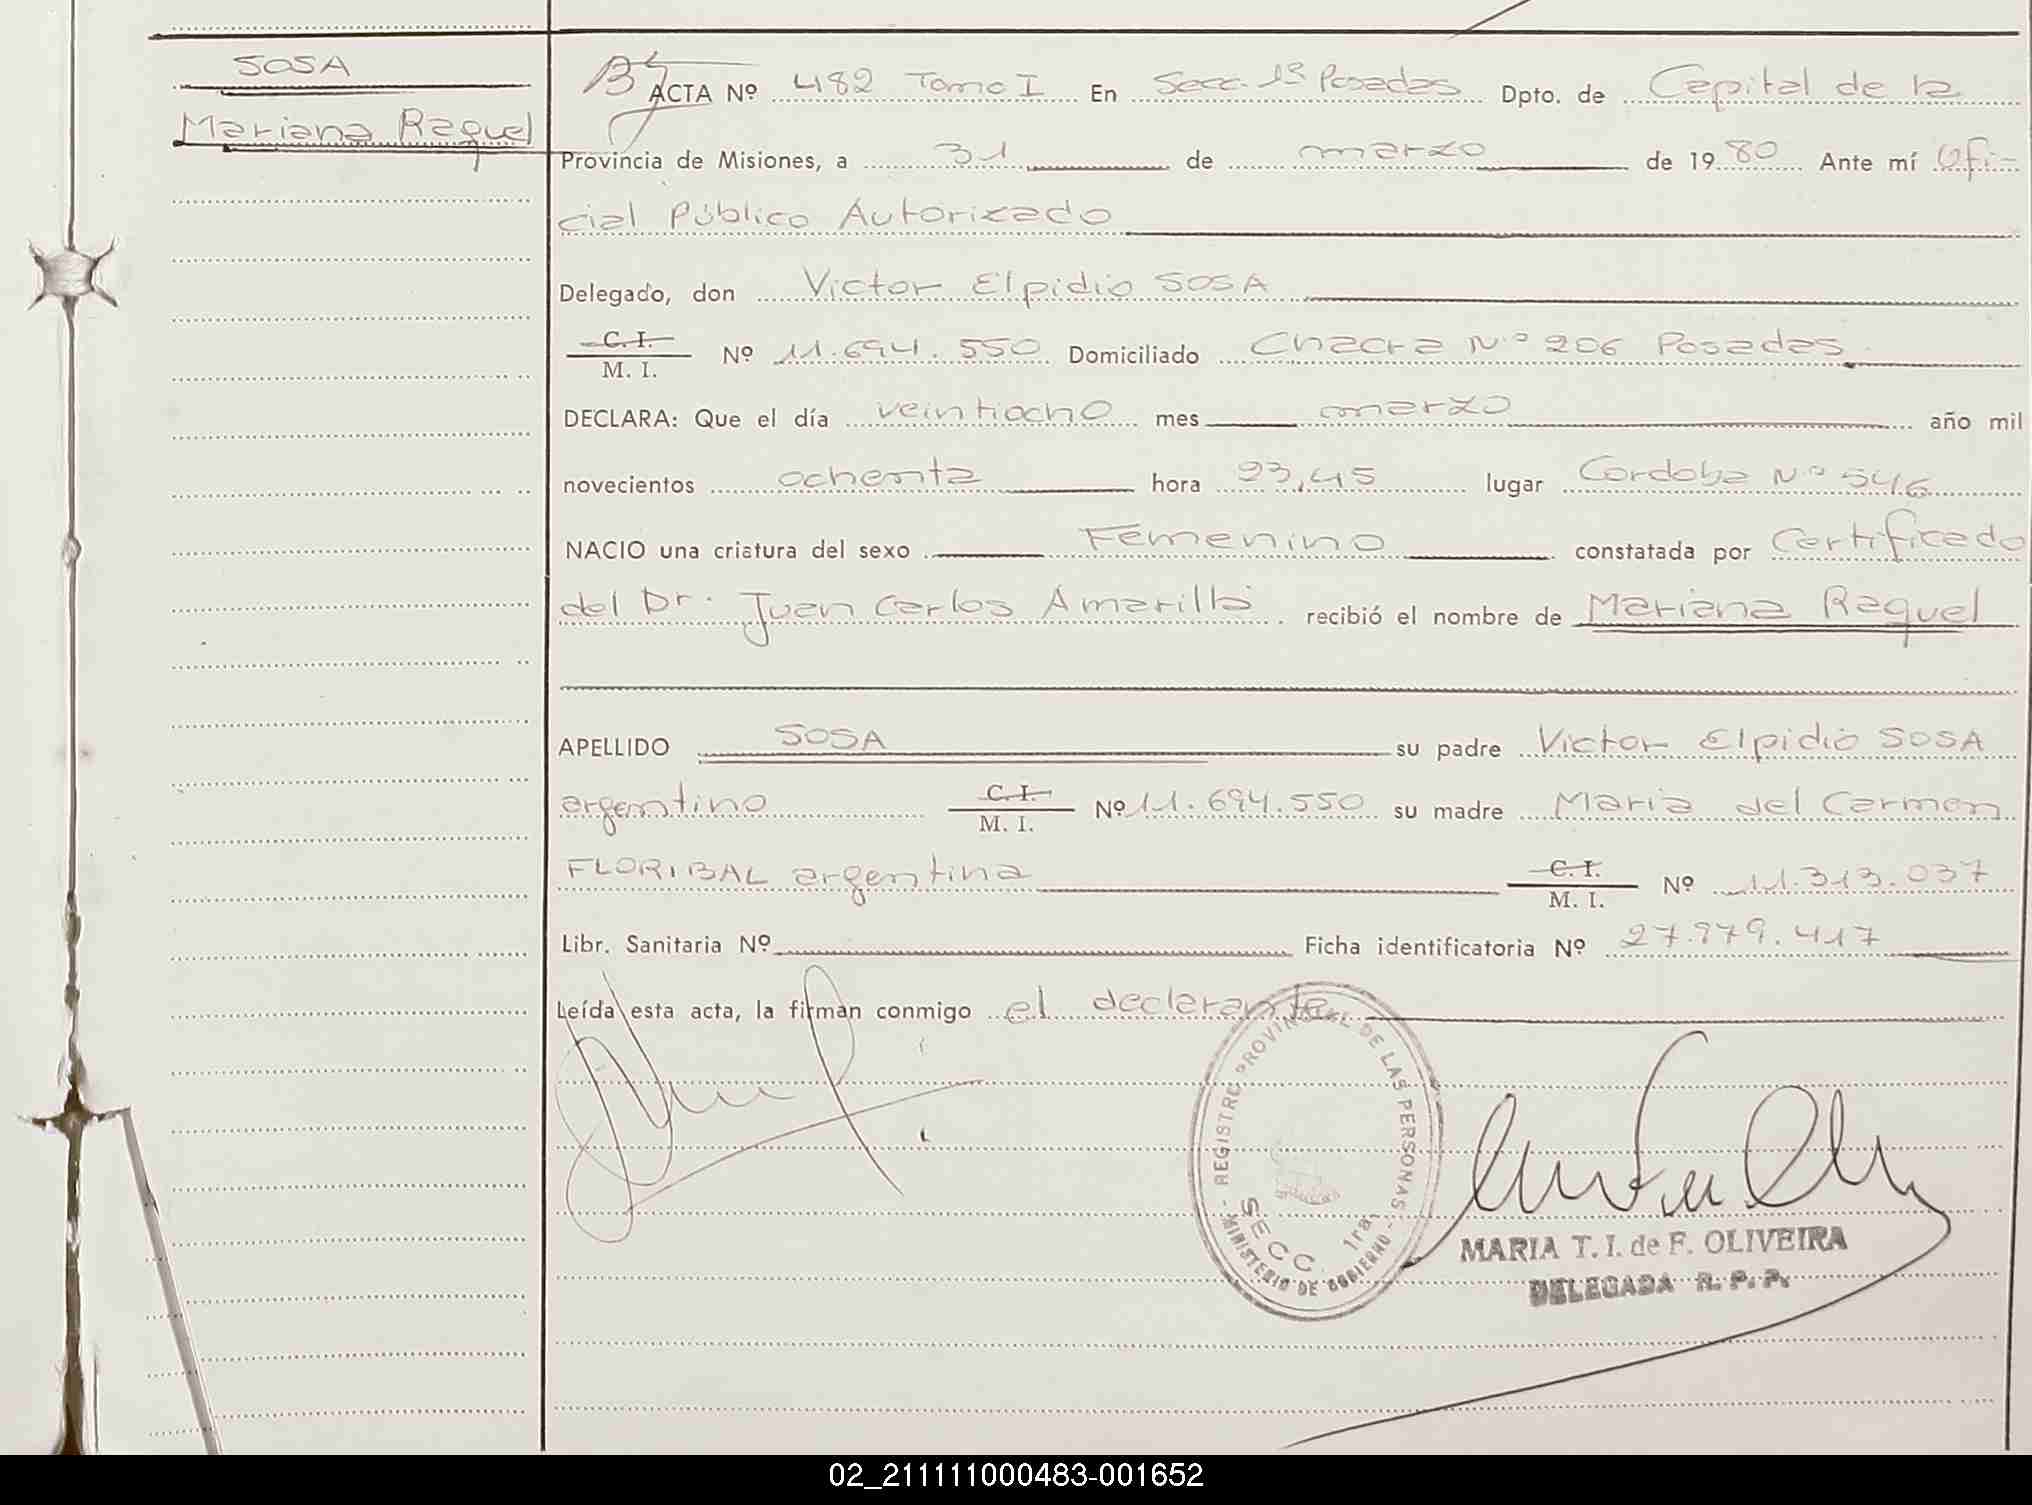 SOSA
Mariana Raquel
ACTA Nº 482 Tomo I En Secc. 1ª Posadas Dpto. de Capital de la
Provincia de Misiones, a 31 de marzo de 1980 Ante mí Ofi-
cial Público Autorizado
Delegado, don Victor Elpidio SOSA
C. I.
M. I. Nº 11.694.550 Domiciliado Chacra Nº 206 Posadas.
DECLARA: Que el día veintiocho mes marzo año mil
novecientos ochenta hora 23,45 lugar Cordoba Nº 546
NACIO una criatura del sexo Femenino constatada por Certificado
del Dr. Juan Carlos Amarilla recibió el nombre de Mariana Raquel
APELLIDO SOSA su padre Victor Elpidio SOSA
argentino C. I.
M. I. Nº 11.694.550 su madre Maria del Carmen
FLORIBAL argentina C. I.
M. I. Nº 11.313.037
Libr. Sanitaria Nº Ficha identificatoria Nº 27.979.417
Leída esta acta, la firman conmigo el declarante
REGISTRO PROVINCIAL DE LAS PERSONAS
SECC. 1ra.
- MINISTERIO DE GOBIERNO -
MARIA T. I. de F. OLIVEIRA
DELEGADA R. P. P.
02_211111000483-001652